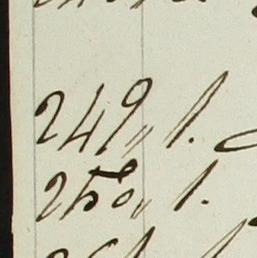 249,, 1.
250,, 1.